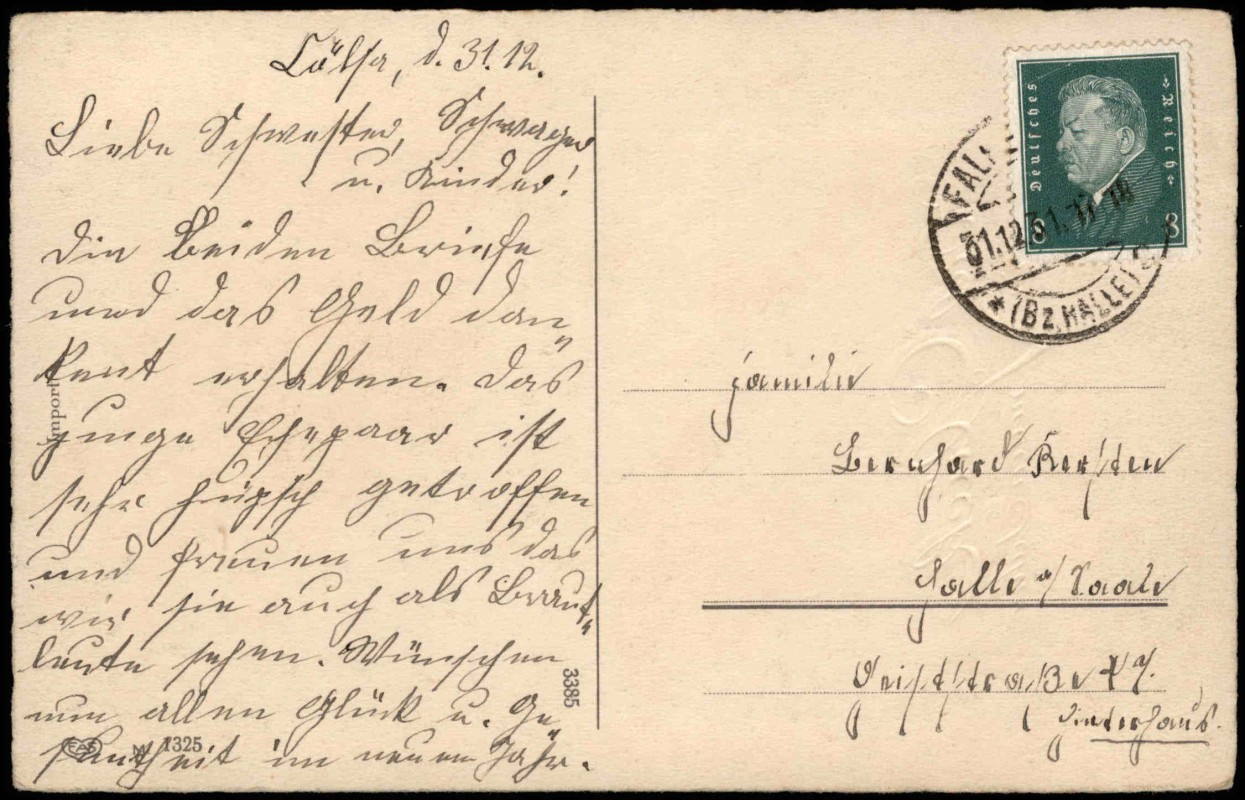 Cölsa, d. 31.12.
Liebe Schwester, Schwager
u. Kinder!
Die beiden Briefe
und das Geld dan„
kent erhalten. Das
junge Ehepaar ist
sehr hüpsch getroffen
und freuen uns das
wir sie auch als Braut„
leute sehen. Wünschen
nun allen Glück u. Ge„
suntheit im neuen Jahr.
Import
EAS
M 1325
3385
Deutsches Reich
8 8
31.12.31. 17-18
* (Bz. HALLE)
Familie
Bernhard Kersten
Halle a/Saale
Geiststraße
Hinterhaus.